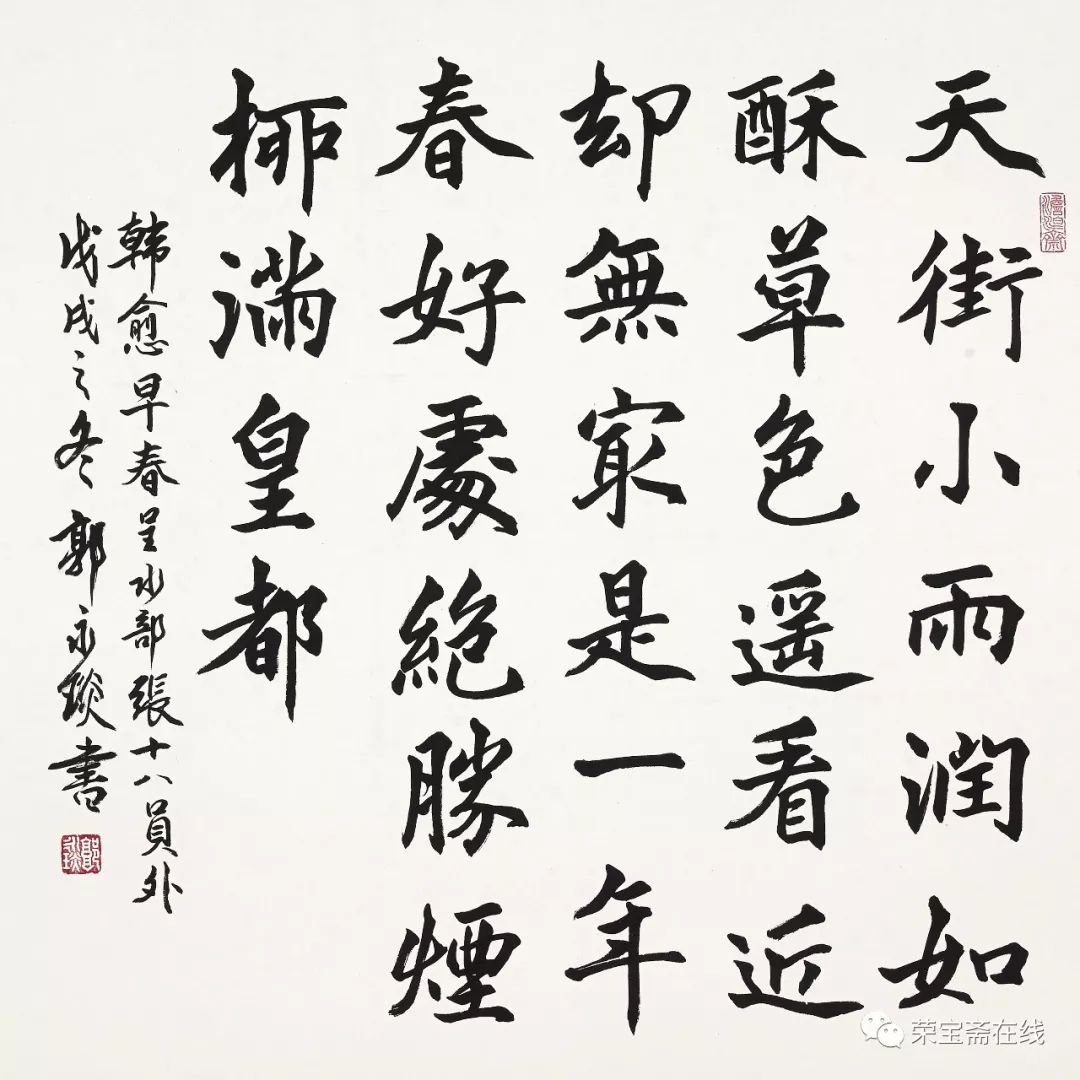 天街小雨潤如
酥草色遥看近
却無㝡是一年
春好處絶勝煙
柳滿皇都
韓愈早春呈水部張十八員外
戊戌之冬郭永琰書
郭永琰
荣宝斋在线